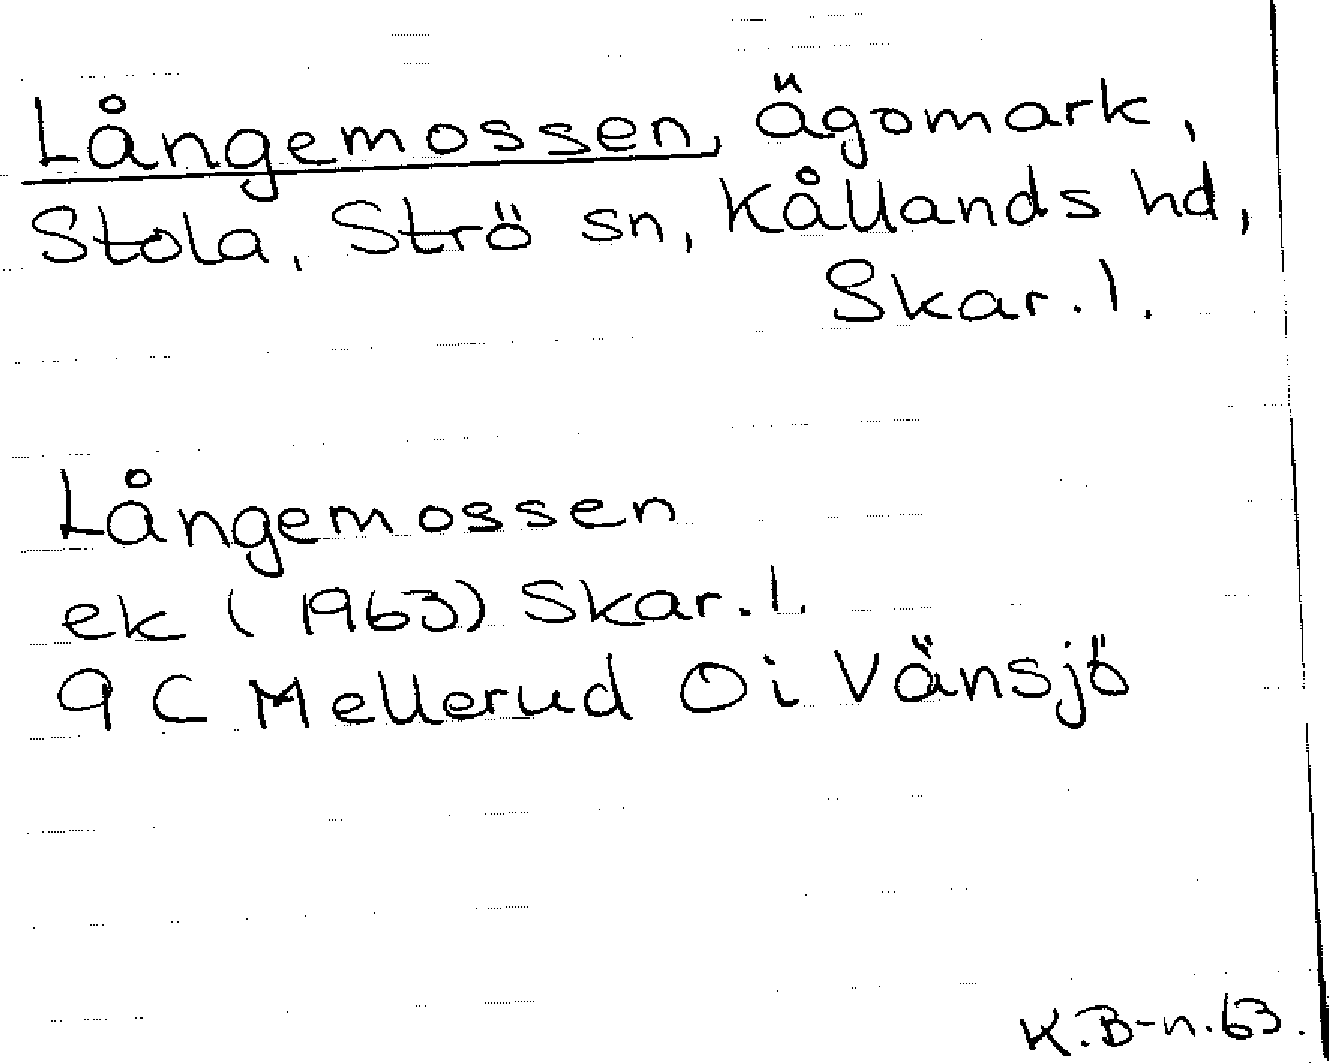 Långemossen, ägomark,
Stola, Strö sn, Kållands hd,
Skar. l.
Långemossen
ek (1963) Skar. l.
9 C Mellerud Ö i Vänsjö
K.B-n. 63.